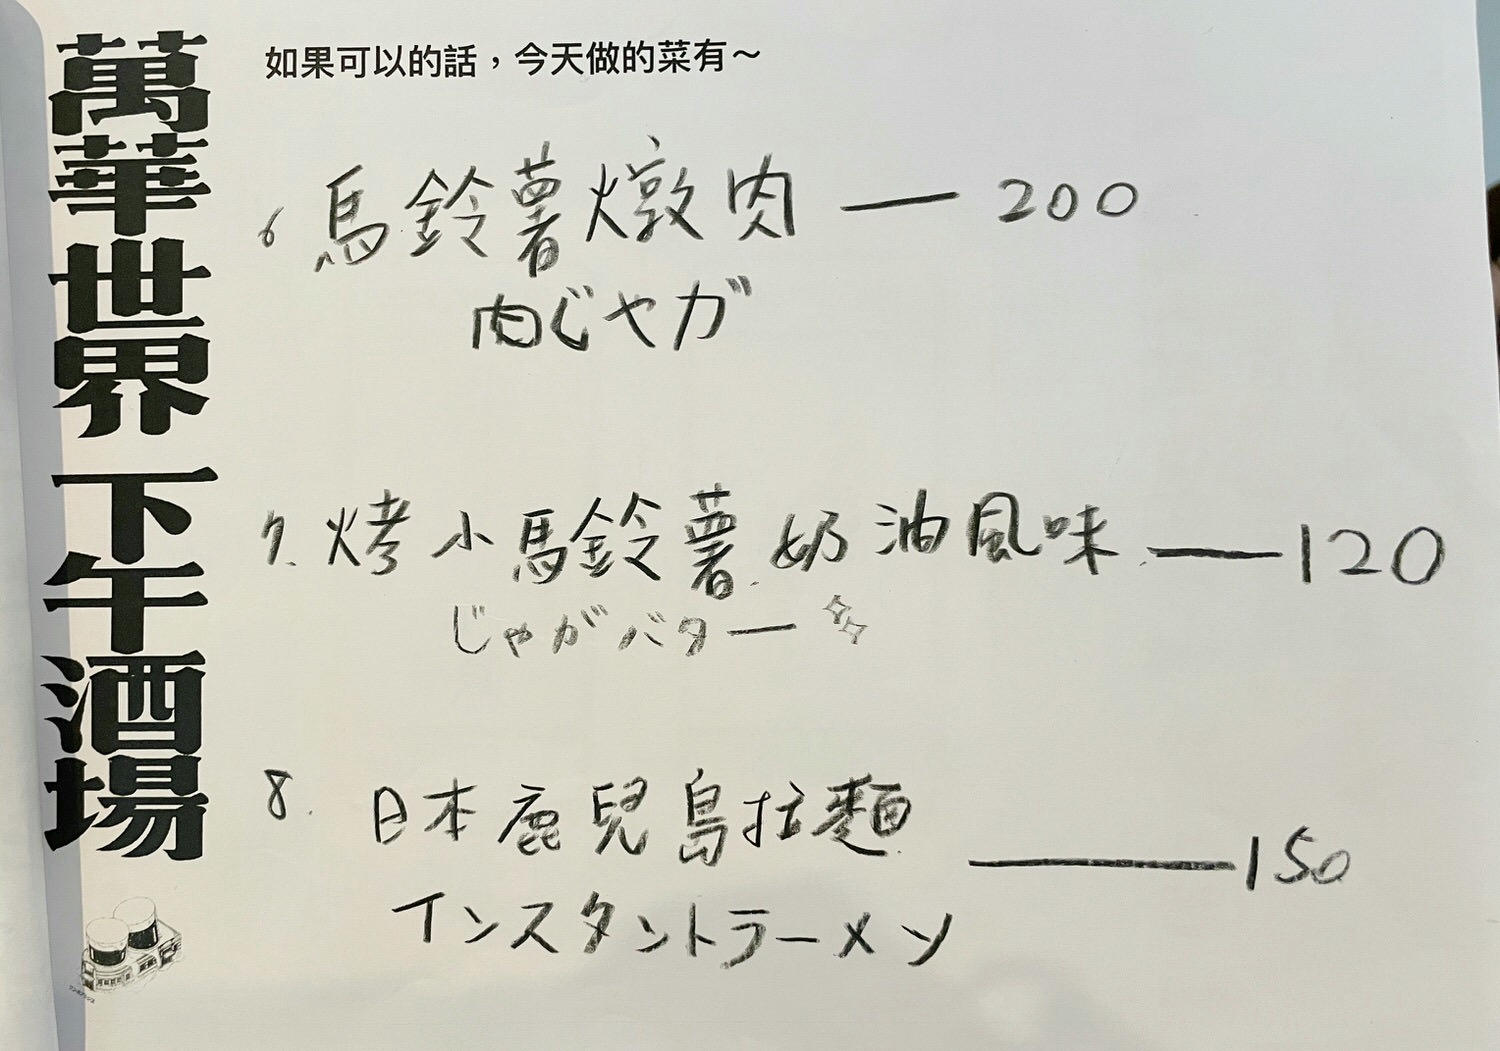 萬華世界 下午酒場
如果可以的話，今天做的菜有～
6 馬鈴薯燉肉 — 200
肉じゃガ
7. 烤小馬鈴薯.奶油風味 — 120
じゃがバター
8. 日本鹿兒島拉麵 — 150
インスタントラーメン